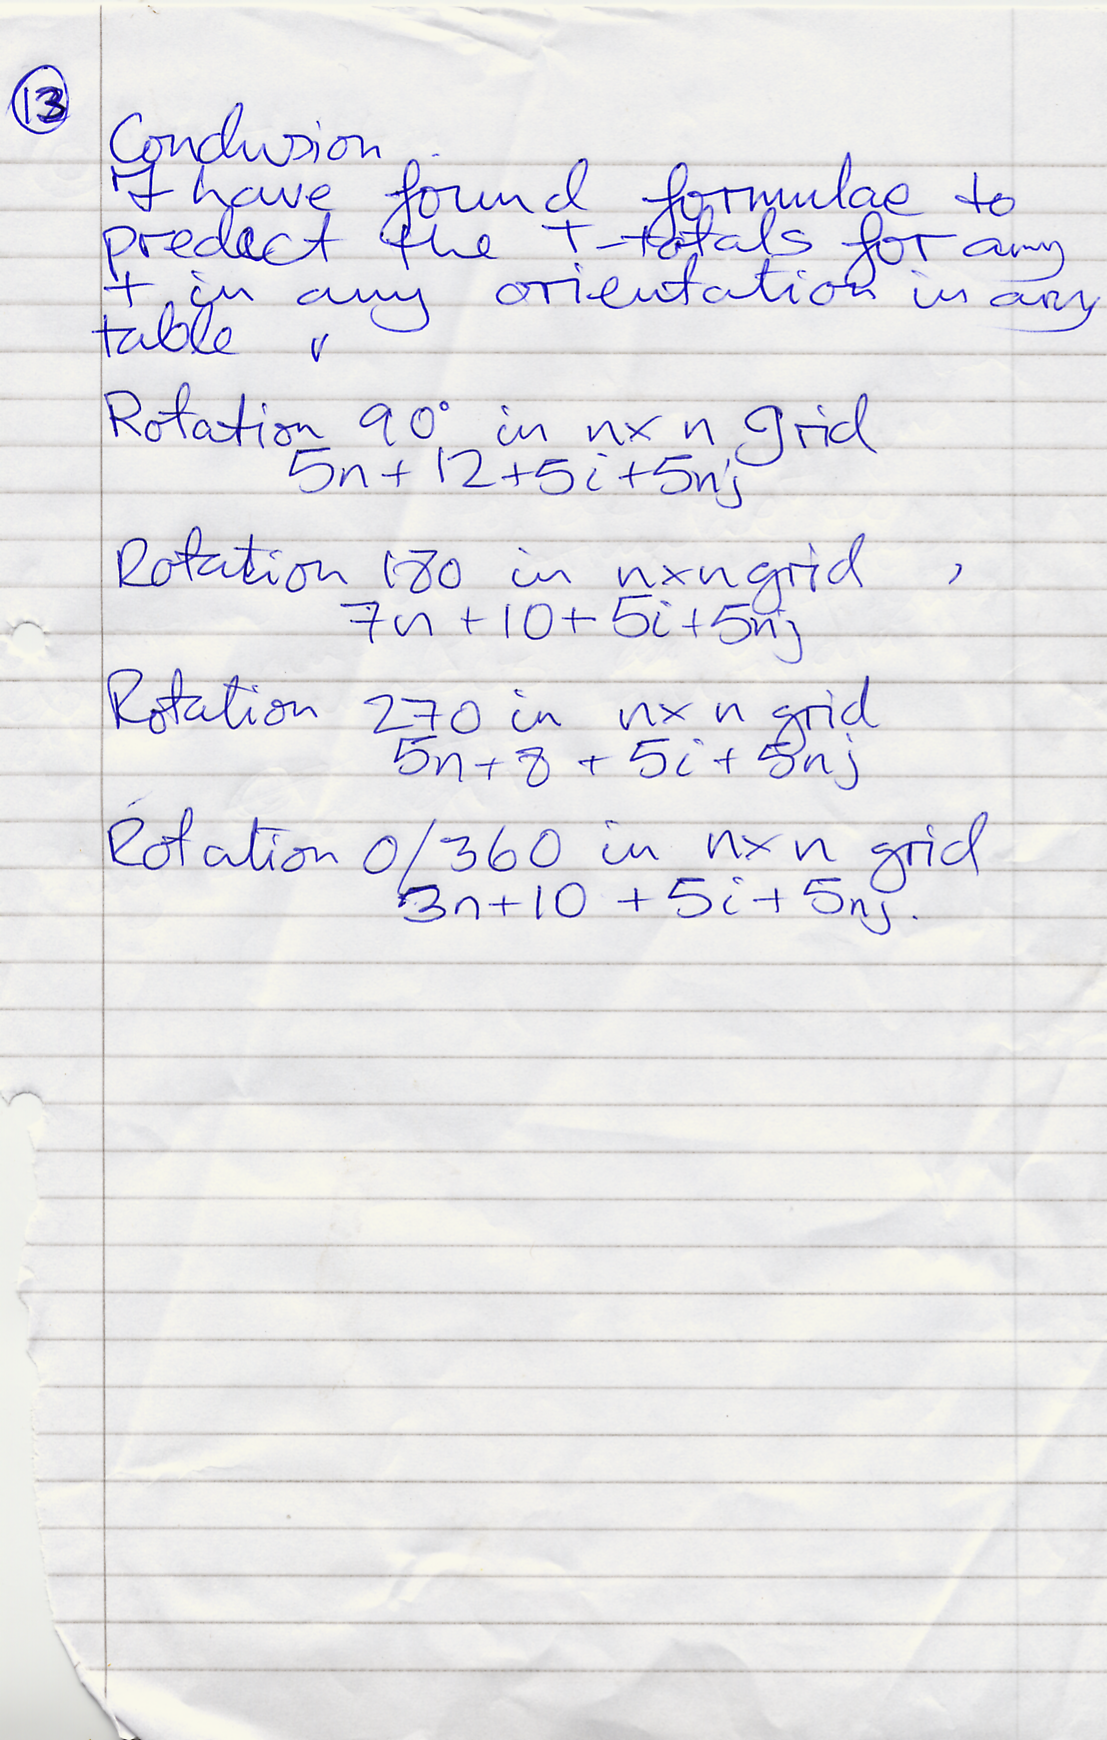 13
Conclusion.
I have found formulae to
predict the T-totals for any
T in any orientation in any
table
Rotation 90° in n×n grid
5n+12+5i+5nj
Rotation 180 in n×n grid
7n+10+5i+5nj
Rotation 270 in n×n grid
5n+8+5i+5nj
Rotation 0/360 in n×n grid
3n+10+5i+5nj.